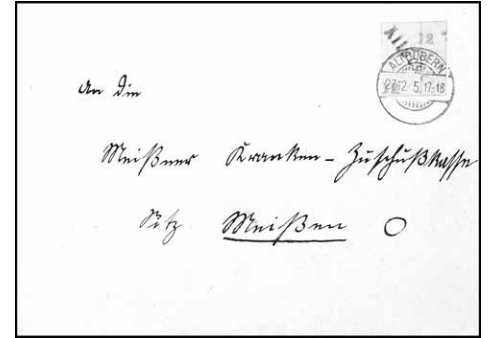 12
ALTDÖBERN
17-18
An die
Meißner Kranken-Zuschußkasse
Sitz Meißen